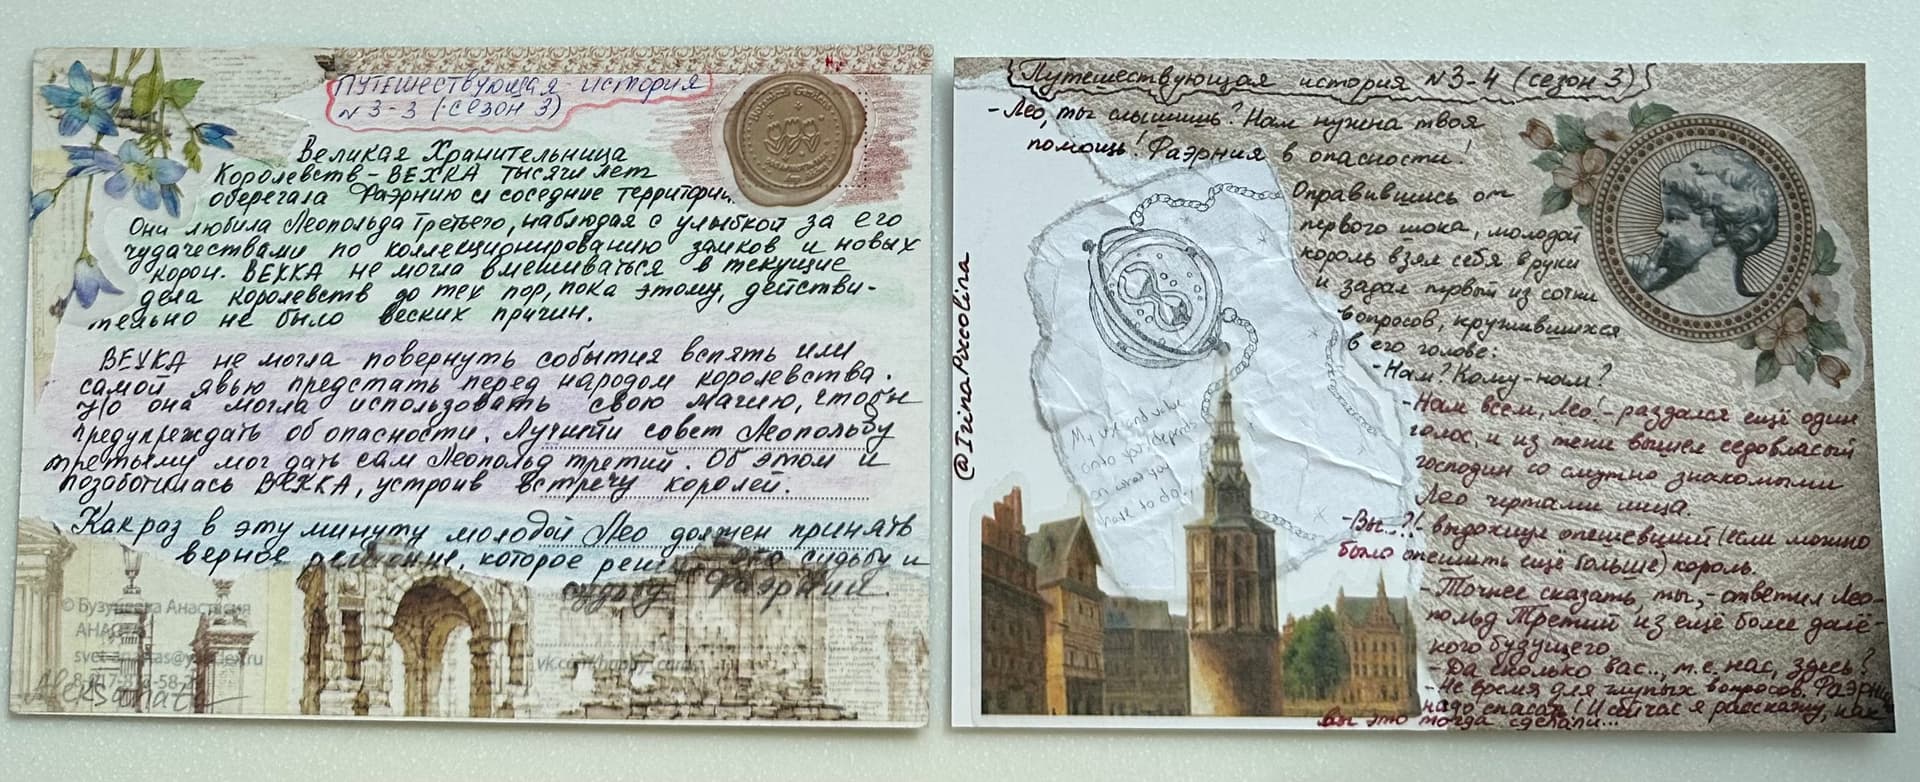 Путешествующая история
№3-3 (сезон 3)
Великая Хранительница
Королевств - ВЕККА тысячи лет
оберегала Фаэрнию и соседние территории.
Она любила Леопольда Третьего, наблюдая с улыбкой за его
чудачествами по коллекционированию замков и новых
корон. ВЕККА не могла вмешиваться в текущие
дела королевств до тех пор, пока этому, действи-
тельно не было веских причин.
ВЕККА не могла повернуть события вспять или
самой явью предстать перед народом королевства.
Но она могла использовать свою магию, чтобы
предупреждать об опасности. Лучший совет Леопольду
третьему мог дать сам Леопольд третий. Об этом и
позаботилась ВЕККА, устроив встречу королей.
Как раз в эту минуту молодой Лео должен принять
верное решение, которое решит его судьбу и
судьбу Фаэрнии.
© Бузунеева Анастасия
vk.com/happy_cards
Путешествующая история №3-4 (сезон 3)
- Лео, ты слышишь? Нам нужна твоя
помощь! Фаэрния в опасности!
Оправившись от
первого шока, молодой
король взял себя в руки
и задал первый из сотни
вопросов, кружившихся
в его голове:
- Нам? Кому - нам?
- Нам всем, Лео! - раздался ещё один
голос, и из тени вышел седовласый
господин со смутно знакомыми
Лео чертами лица.
- Вы...?! выдохнул опешевший (если можно
было опешить ещё больше) король.
- Точнее сказать, ты, - ответил Лео-
польд Третий из ещё более далё-
кого будущего.
- Да сколько вас.., т.е. нас, здесь?
- Не время для глупых вопросов. Фаэрнию
надо спасать! И сейчас я расскажу, как
вы это тогда сделали...
@IrinaPixolina
My use and value
unto you depends
on what you
have to do.